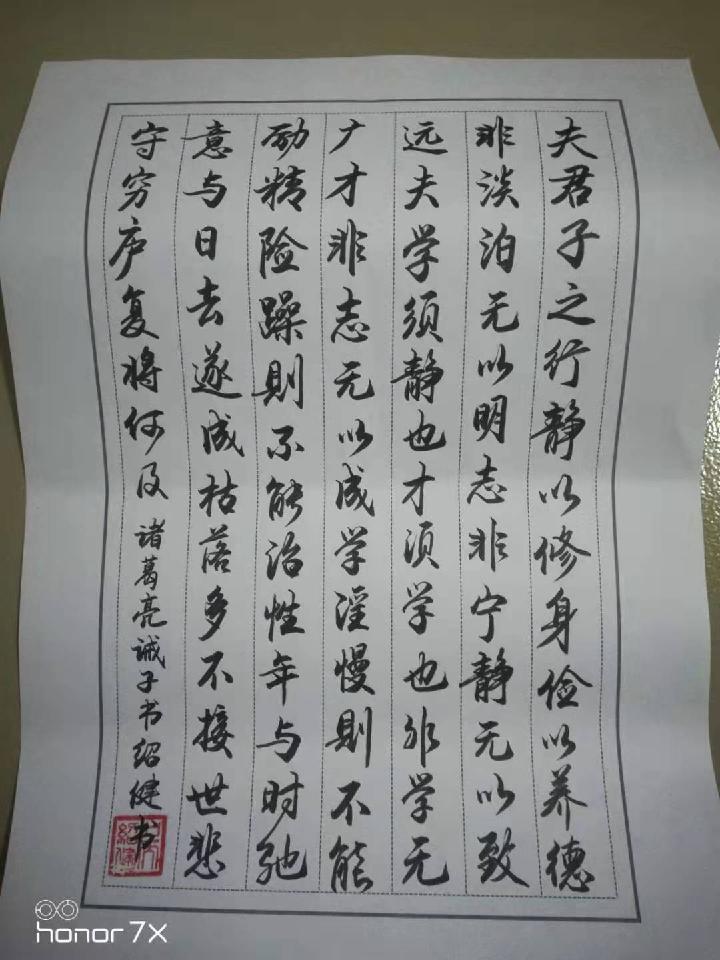 夫君子之行静以修身俭以养德
非淡泊无以明志非宁静无以致
远夫学须静也才须学也非学无
广才非志无以成学淫慢则不能
励精险躁则不能治性年与时驰
意与日去遂成枯落多不接世悲
守穷庐复将何及 诸葛亮诫子书绍健书
honor 7X